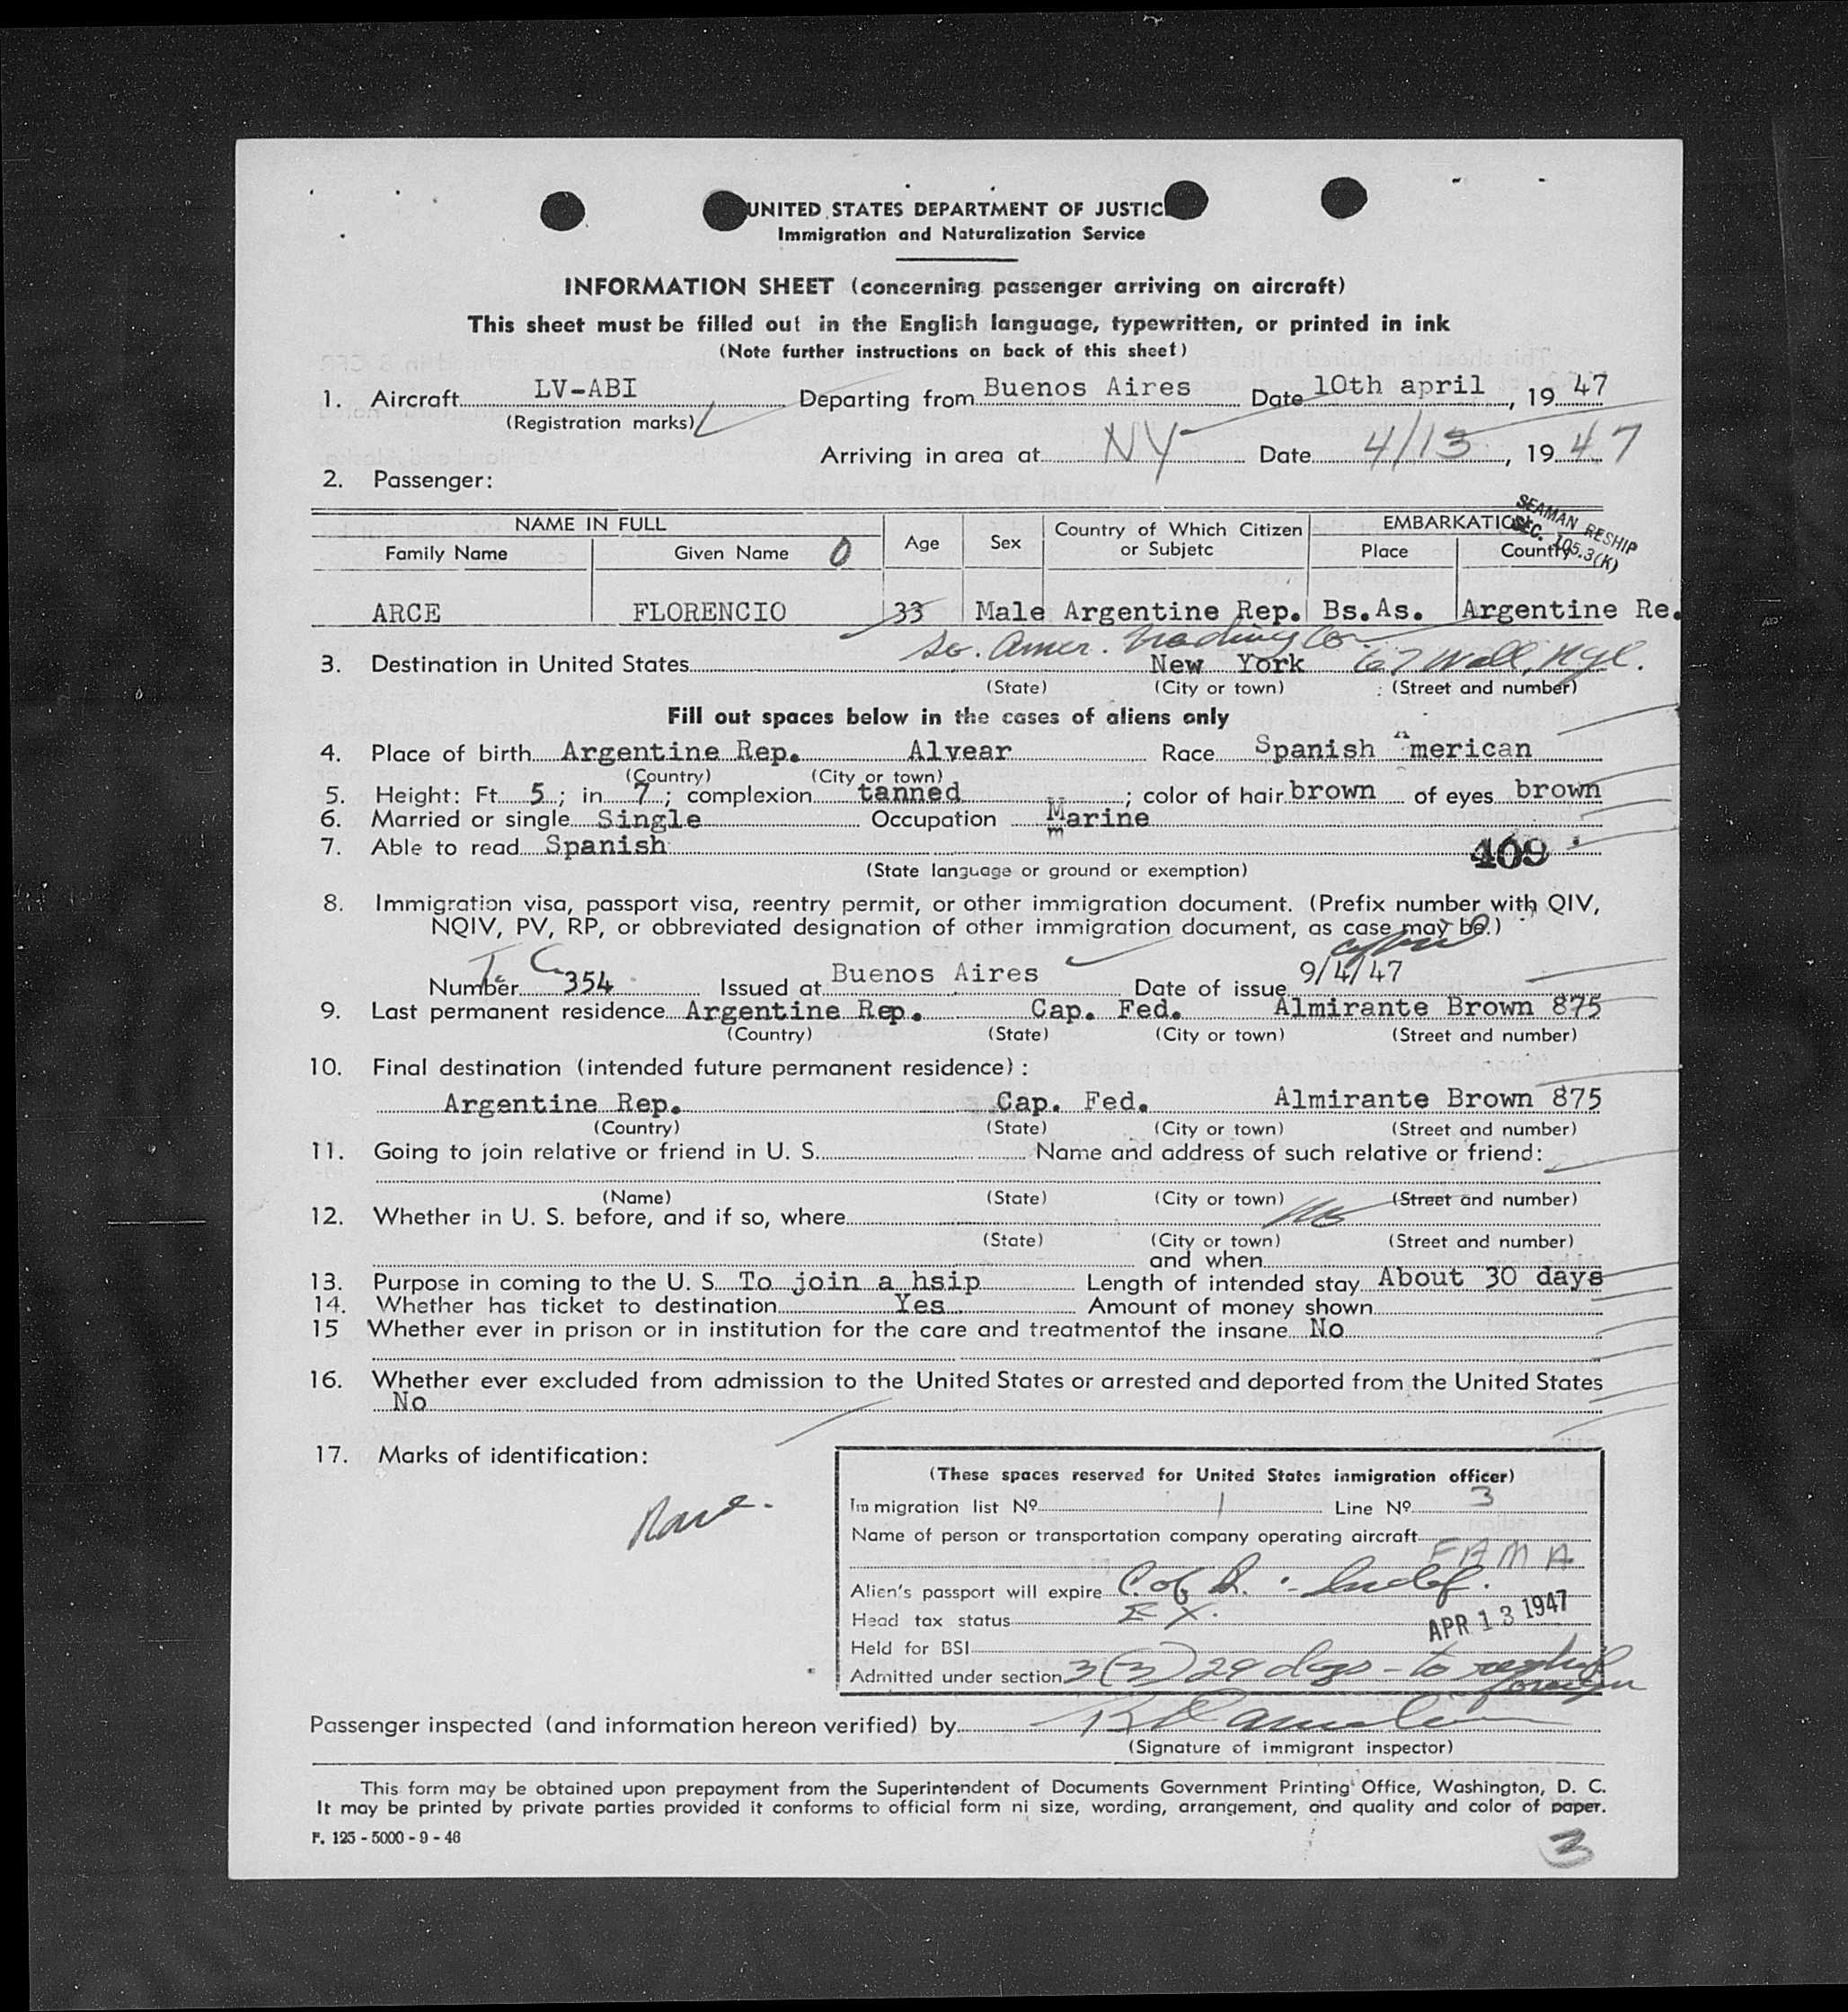 UNITED STATES DEPARTMENT OF JUSTIC
Immigration and Naturalization Service
INFORMATION SHEET (concerning passenger arriving on aircraft)
This sheet must be filled out in the English language, typewritten, or printed in ink
(Note further instructions on back of this sheet)
1. Aircraft LV-ABI Departing from Buenos Aires Date 10th april, 19 47
(Registration marks)
Arriving in area at NY Date 4/13, 19 47
2. Passenger:
SEAMAN RESHIP
SEC. 105.3(K)
NAME IN FULL Age Sex Country of Which Citizen or Subjetc EMBARKATION
Family Name Given Name 0 Place Country
ARCE FLORENCIO 33 Male Argentine Rep. Bs.As. Argentine Re.
So. Amer. Trading Co.
3. Destination in United States New York 67 Wall, NYC.
(State) (City or town) (Street and number)
Fill out spaces below in the cases of aliens only
4. Place of birth Argentine Rep. Alvear Race Spanish American
(Country) (City or town)
5. Height: Ft. 5; in 7; complexion tanned; color of hair brown of eyes brown
6. Married or single Single Occupation Marine
m
7. Able to read Spanish 409
(State language or ground or exemption)
8. Immigration visa, passport visa, reentry permit, or other immigration document. (Prefix number with QIV,
NQIV, PV, RP, or obbreviated designation of other immigration document, as case may be.)
Number T.C. 354 Issued at Buenos Aires Date of issue 9/4/47
9. Last permanent residence Argentine Rep. Cap. Fed. Almirante Brown 875
(Country) (State) (City or town) (Street and number)
10. Final destination (intended future permanent residence):
Argentine Rep. Cap. Fed. Almirante Brown 875
(Country) (State) (City or town) (Street and number)
11. Going to join relative or friend in U. S. Name and address of such relative or friend:
(Name) (State) (City or town) (Street and number)
12. Whether in U. S. before, and if so, where No
(State) (City or town) (Street and number)
and when
13. Purpose in coming to the U. S. To join a hsip Length of intended stay About 30 days
14. Whether has ticket to destination Yes Amount of money shown
15 Whether ever in prison or in institution for the care and treatmentof the insane No
16. Whether ever excluded from admission to the United States or arrested and deported from the United States
No
17. Marks of identification:
None.
(These spaces reserved for United States inmigration officer)
Immigration list Nº 1 Line Nº 3
Name of person or transportation company operating aircraft
FAMA
Alien's passport will expire C. of I. - Indef.
Head tax status EX. APR 13 1947
Held for BSI
Admitted under section 3(3) 29 days - to reship
foreign
Passenger inspected (and information hereon verified) by
(Signature of immigrant inspector)
This form may be obtained upon prepayment from the Superintendent of Documents Government Printing Office, Washington, D. C.
It may be printed by private parties provided it conforms to official form ni size, wording, arrangement, and quality and color of paper.
F. 125 - 5000 - 9 - 46
3